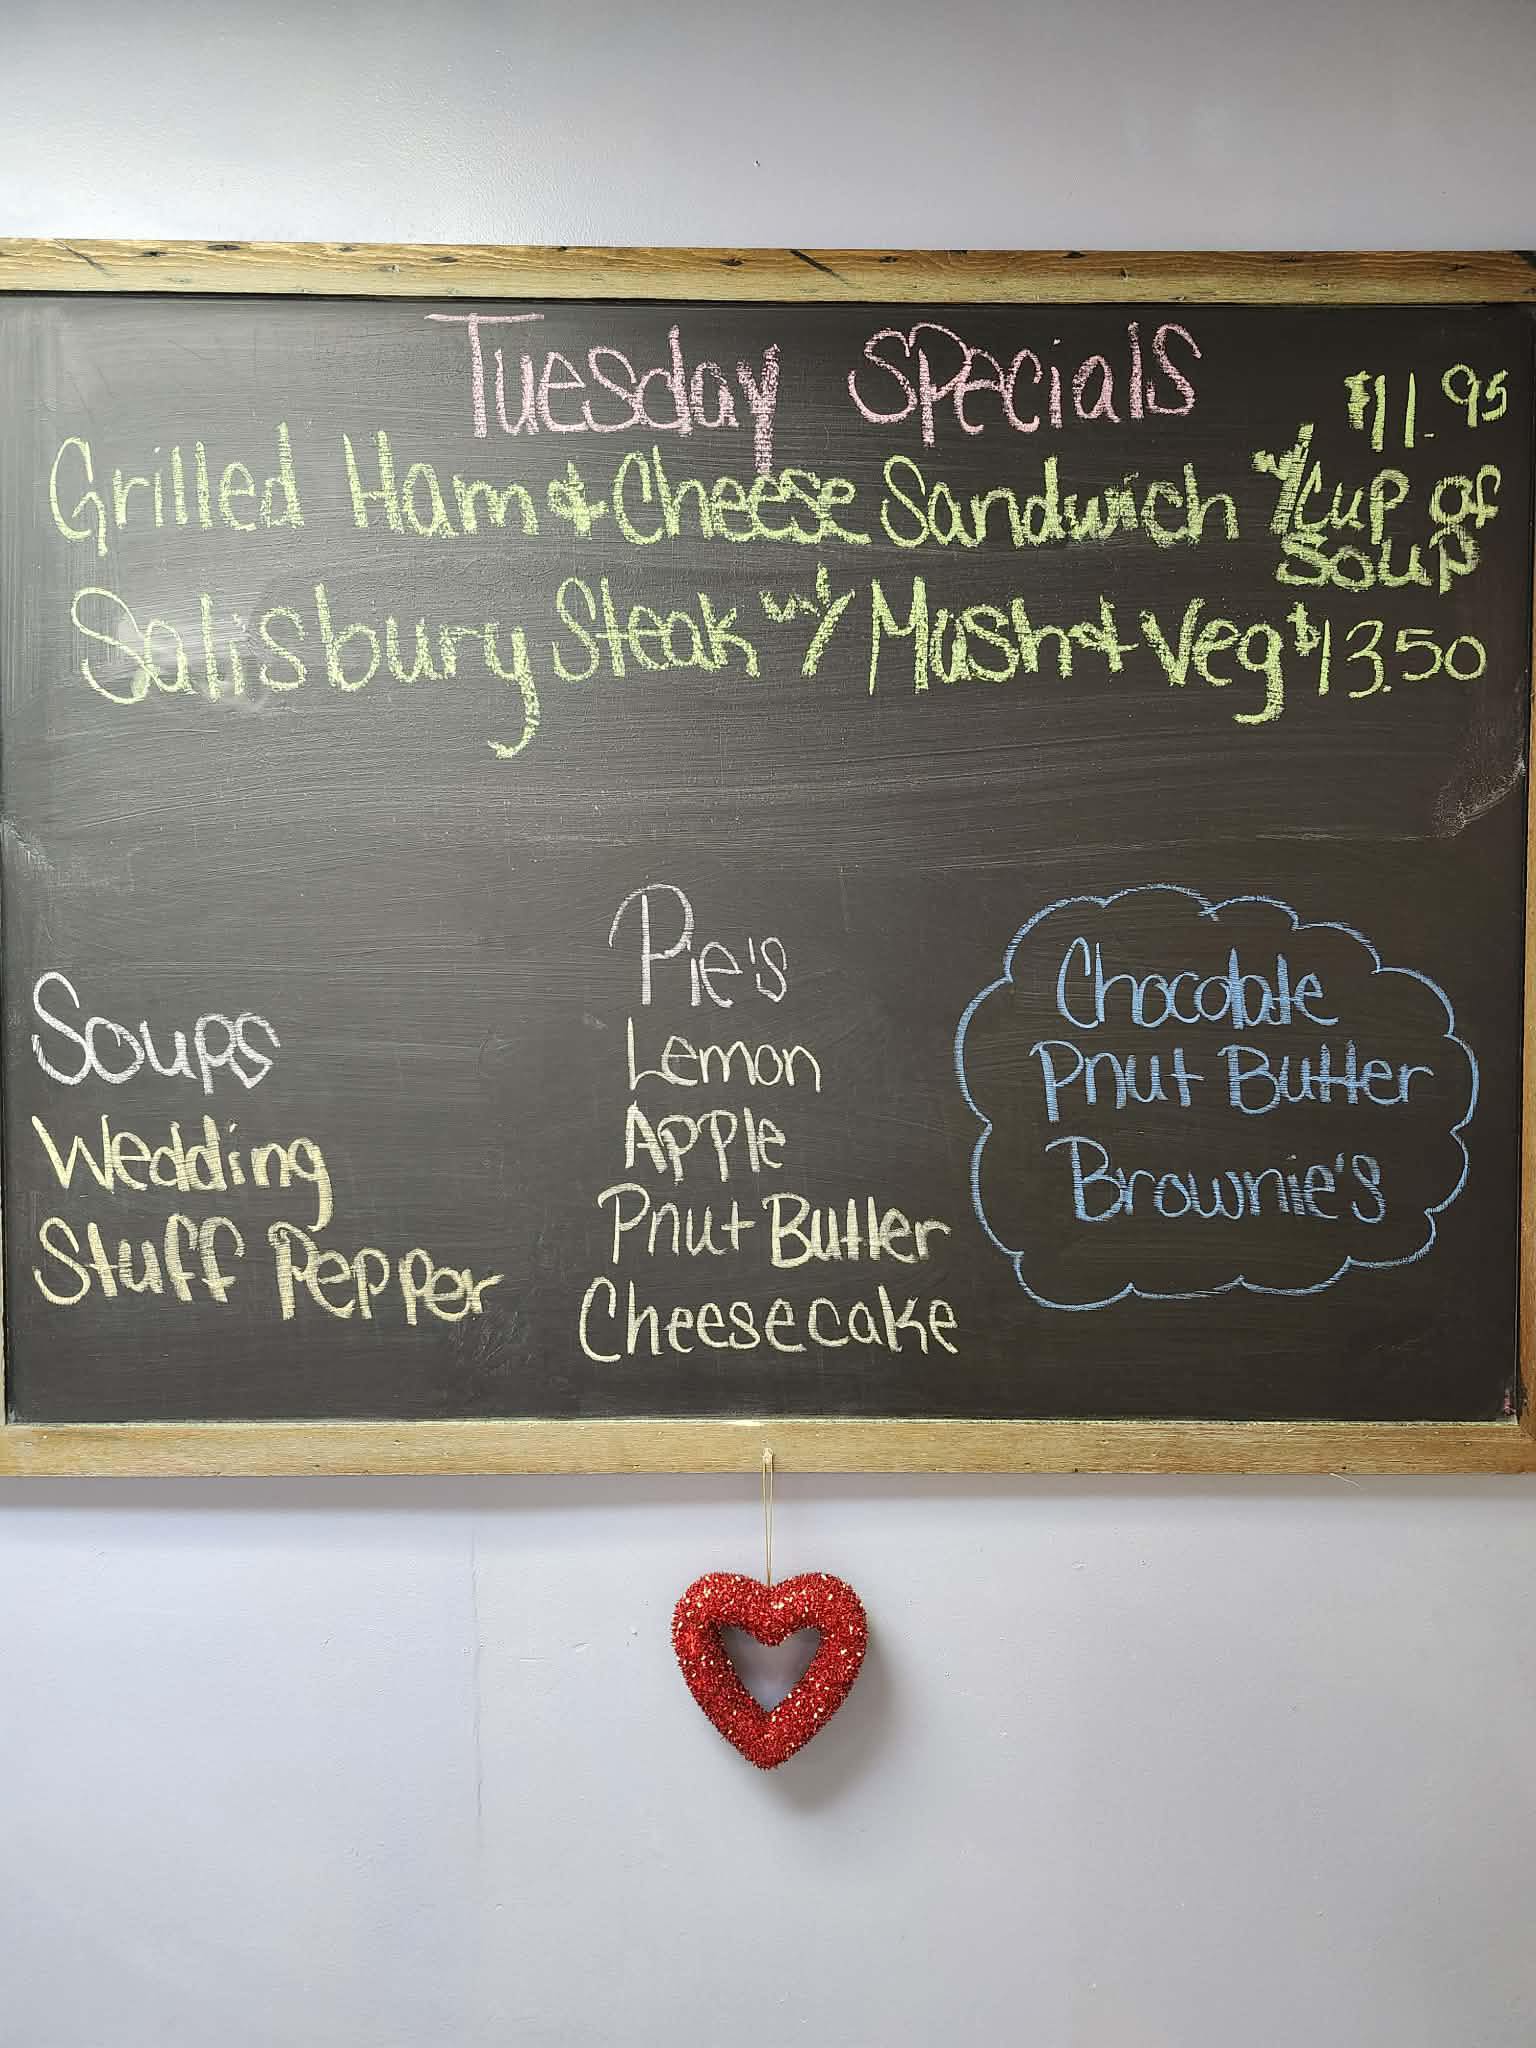 Tuesday Specials
$11.95
Grilled Ham & Cheese Sandwich w/ Cup of
Soup
Salisbury Steak w/ Mash & Veg $13.50
Soups
Wedding
Stuff Pepper
Pie's
Lemon
Apple
Pnut Butter
Cheesecake
Chocolate
Pnut Butter
Brownie's